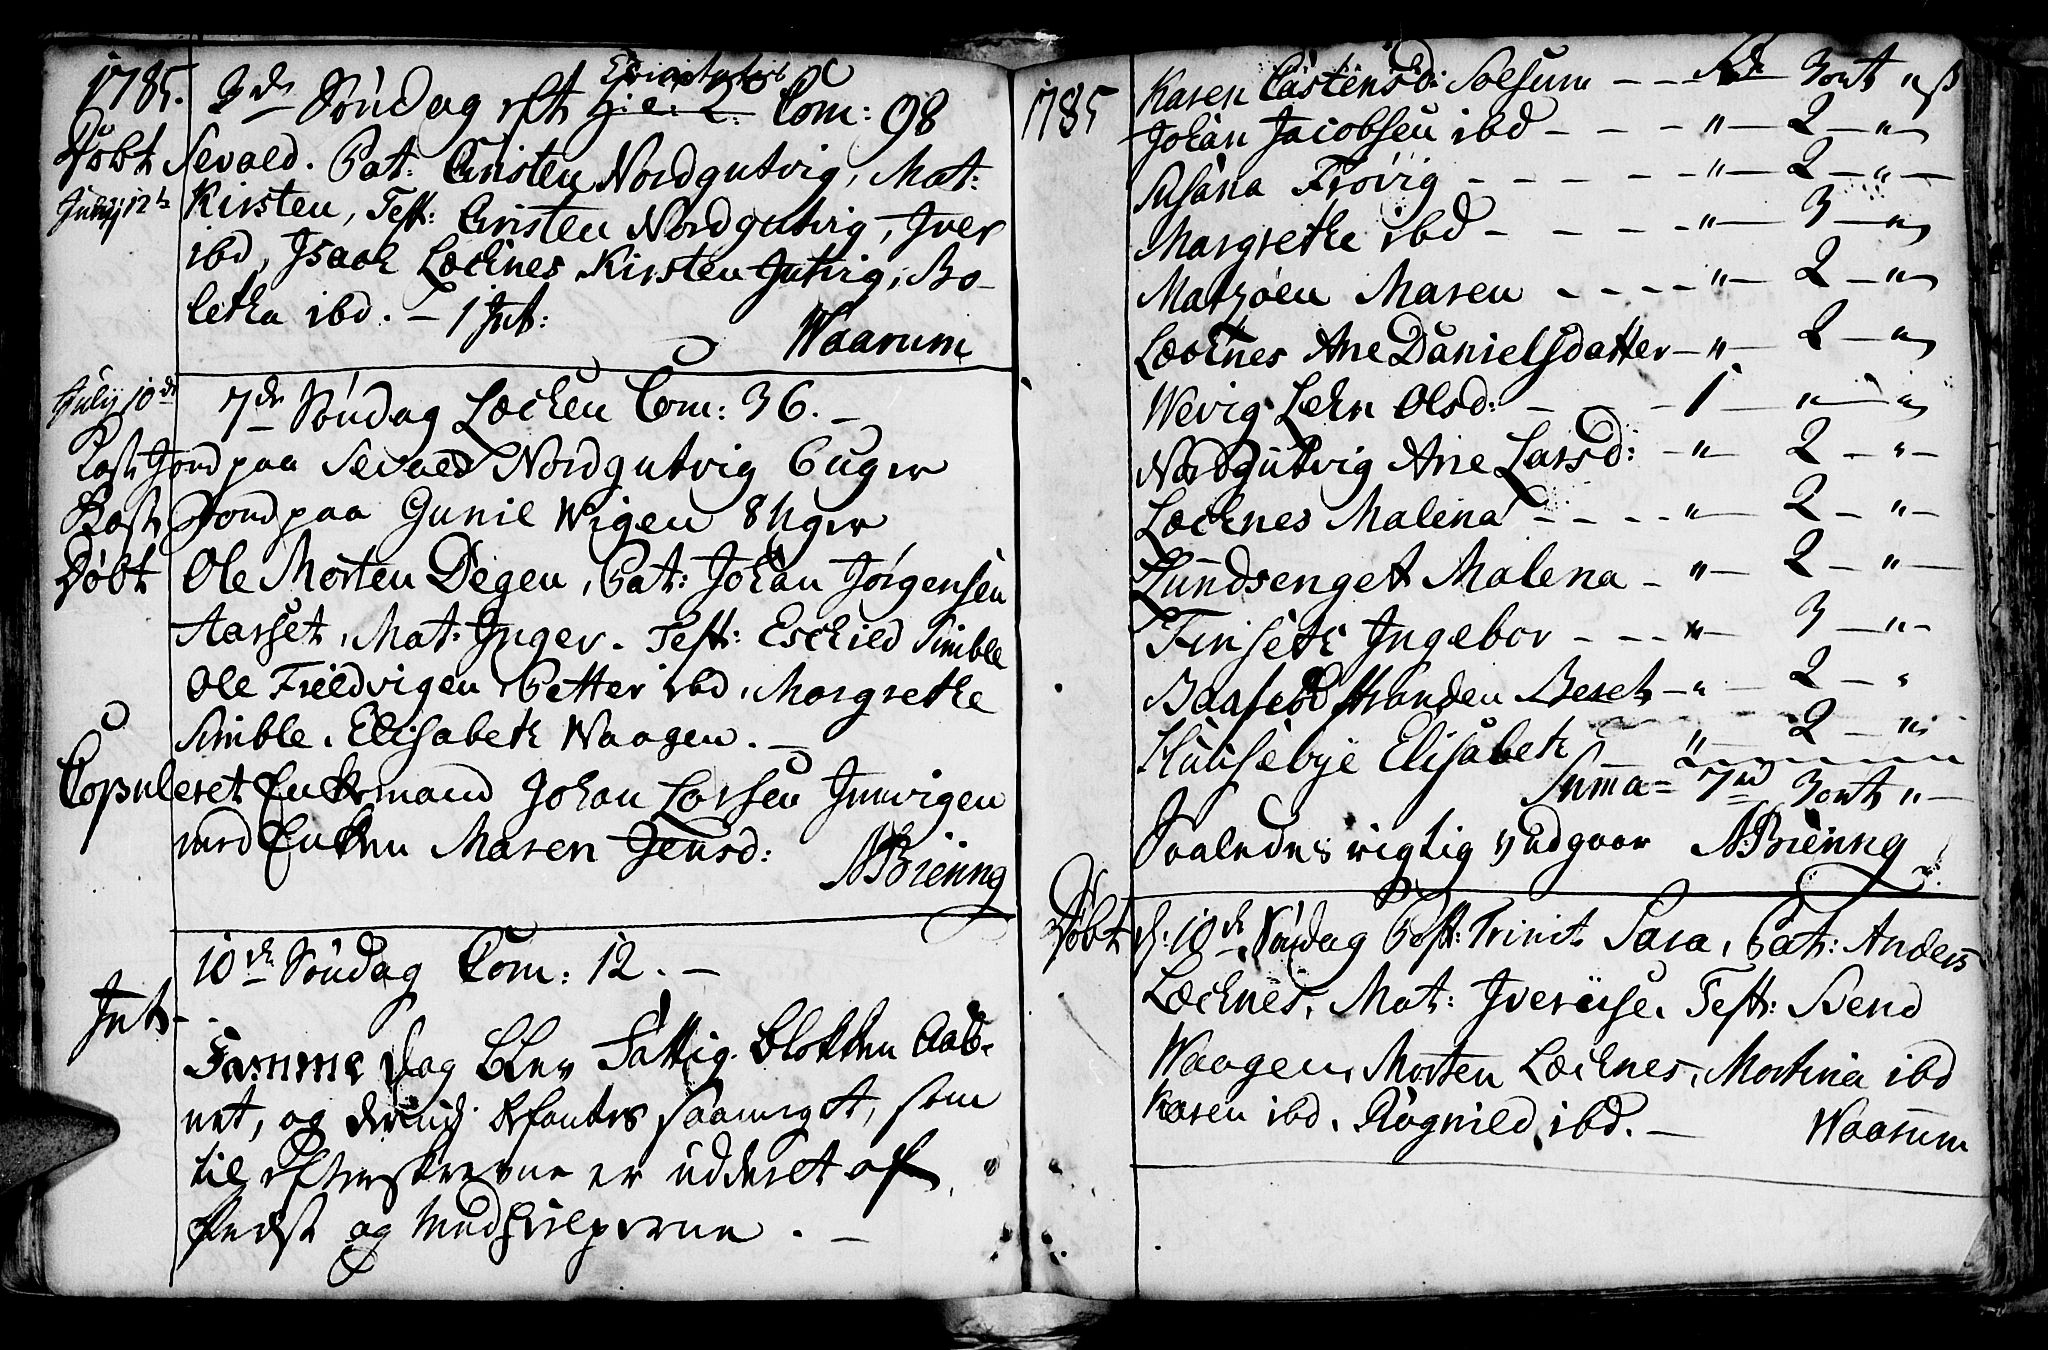 1785.
3de Søndag eft Trinitatis Com: 98
Døbt Sevald. Pat: Christen Nordgutvig, Mat:
Junij 12te Kirsten, Test: Christen Nordgutvig, Iver
ibd, Isach Lochnes Kirsten Gutvig, Bo-
letha ibd. - 1 Int:
Waarum
Julij 10de 7de Søndag Lochen Com: 36. -
Løste Jord paa Sevald Nordgutvig 6 uger
Kaste Jord paa Gunil Wigen 8 uger
Døbt Ole Morten Degen, Pat: Johan Jørgensen
Aarset, Mat: Inger. Test: Eschild Simble
Ole Fieldvigen Petter ibd, Margrethe
Simble, Elisabeth Waagen. -
Copuleret Enkemand Johan Larsen Indvigen
med Enken Maren Jensd:
N Brienng
10de Søndag Com: 12. -
Int.
Samme Dag blev Fattig Blokken aab-
net, og deraf saameget, som
til efterskrevne er uddeelt af
Præst og Medhielperne. -
1785
Karen Castensd: Solsum - - Rd. 3 ort " ß
Johan Jacobsen ibd - - - " - 2 - "
Susana Frøvig - - - - - " - 2 - " -
Margrethe ibd - - - - " - 3 - "
Matzøen Maren - - - - " - 2 - "
Lochnes Ane Danielsdatter - " - 2 - "
Wevig Lehn Olsd: - - - 1 - " - "
Nordgutvig Ane Larsd: - " - 2 - " -
Lochnes Malena - - - - " - 2 - " -
Lundsenget Malena - " - 2 - " -
Finseth Ingebor - - - " - 3 - " -
Baasedstranden Bereth - " - 2 - "
Huusebye Elisabeth - " - 2 - "
Suma = 7 rd 3 ort " -
Saaledes rigtig udgaar N. Brienng
Døbt d: 10de Søndag Post: Trinit. Sara, Pat: Anders
Lochnes, Mat: Iveruse. Test: Svend
Waagen, Morten Lochnes, Martina ibd
Karen ibd. Ragnild ibd. -
Waarum